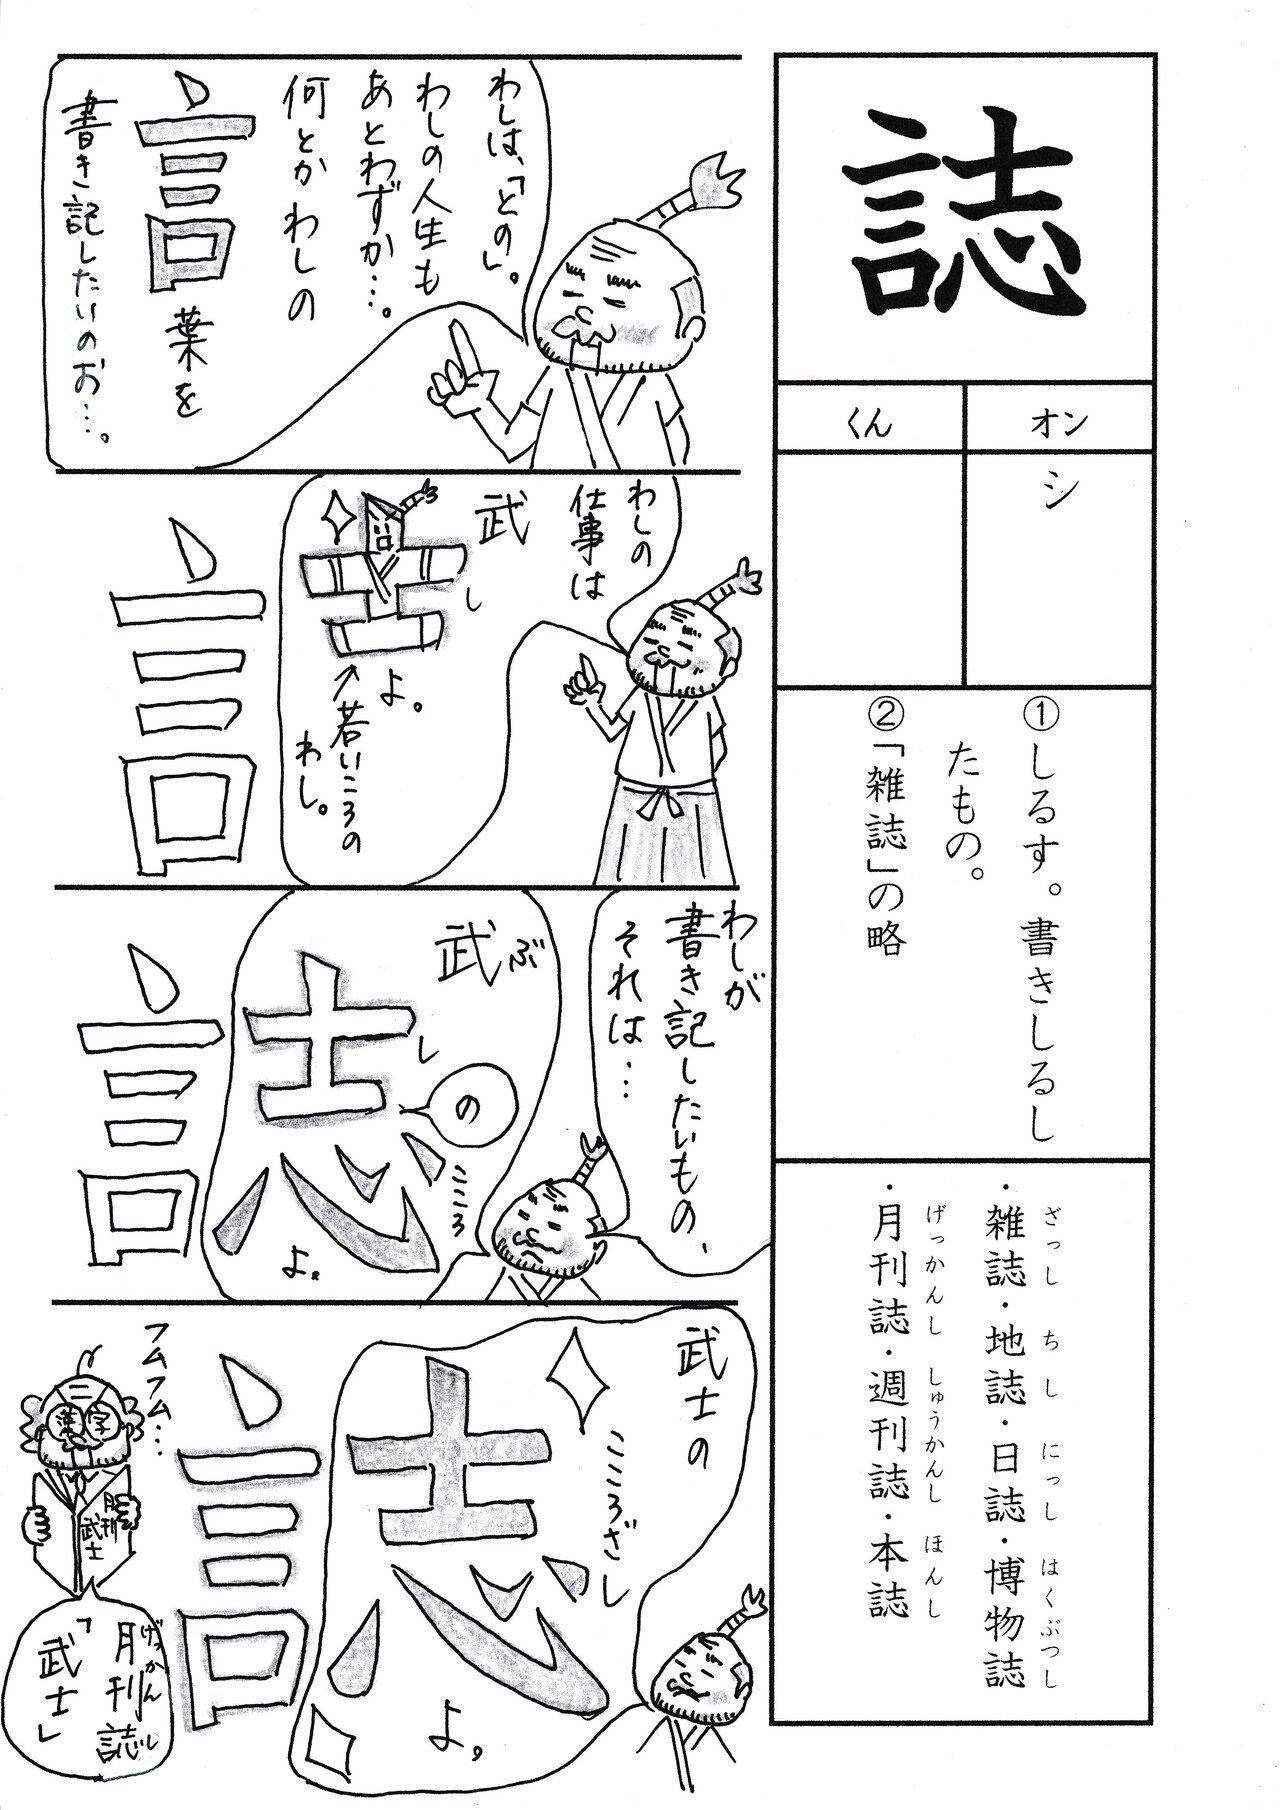 誌
オン
くん
シ
①しるす。書きしるし
たもの。
②「雑誌」の略
・雑誌・地誌・日誌・博物誌
ざっし ちし にっし はくぶつし
・月刊誌・週刊誌・本誌
げっかんし しゅうかんし ほんし
わしは、「との」。
わしの人生も
あとわずか…。
何とかわしの
言葉を
書き記したいのお…。
わしの
仕事は
武士
し
よ。
↑若いころの
わし。
言
わしが
書き記したいもの、
それは…
武
ぶ
士
し
の
心
こころ
よ。
言
武士の
志
こころざし
よ。
言
フムフム…
二
漢字
月刊
武士
月刊誌
げっかんし
「武士」